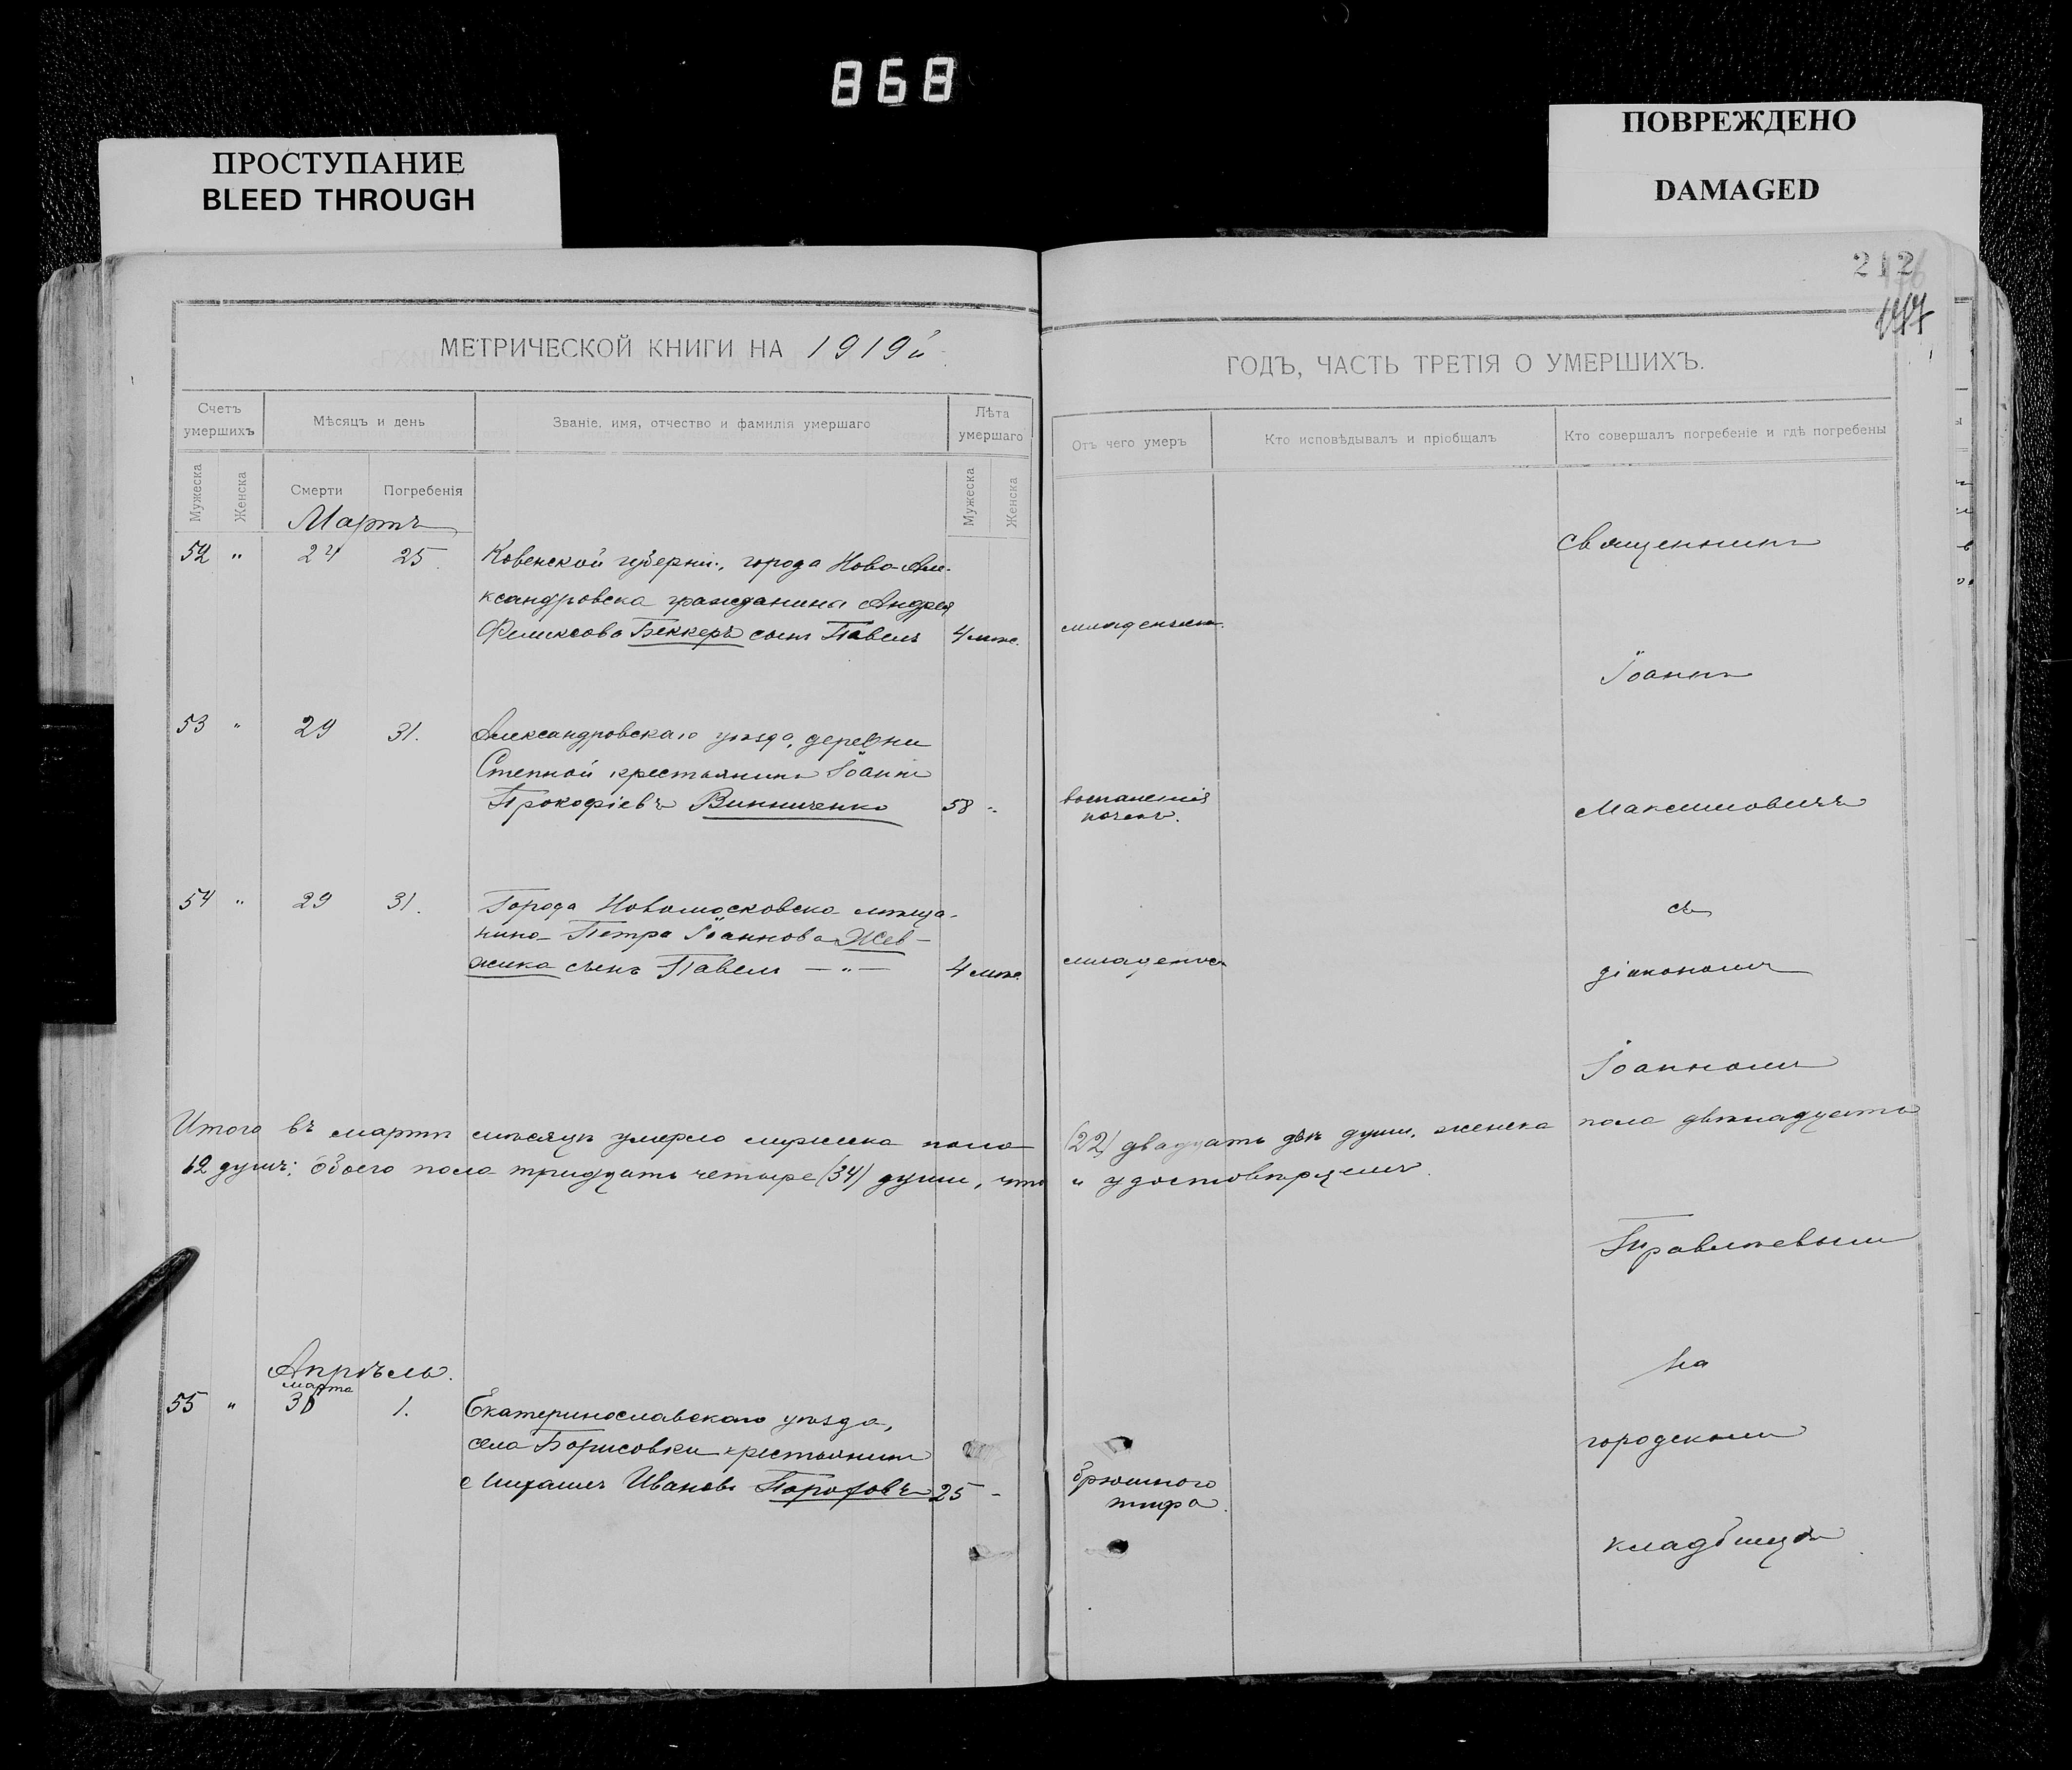 868
ПРОСТУПАНИЕ
BLEED THROUGH
ПОВРЕЖДЕНО
DAMAGED
212
МЕТРИЧЕСКОЙ КНИГИ НА 1919й
ГОДЪ, ЧАСТЬ ТРЕТІЯ О УМЕРШИХЪ.
Счетъ умершихъ
Мѣсяцъ и день
Званіе, имя, отчество и фамилія умершаго
Лѣта умершаго
Отъ чего умеръ
Кто исповѣдывалъ и пріобщалъ
Кто совершалъ погребеніе и гдѣ погребены
Мужеска
Женска
Смерти
Погребенія
Мужеска
Женска
Мартъ
52 " 24 25
Ковенской губерніи, города Ново-Але-
ксандровска гражданина Андрея
Феликсова Беккеръ сынъ Павелъ 4 мѣс.
младенческ.
53 " 29 31.
Александровскаго уѣзда, деревни
Степной крестьянинъ Іоаннъ
Прокофіевъ Винниченко 58 "
воспаленія
почекъ.
54 " 29 31.
Города Новомосковска мѣща-
нина Петра Іоаннова Жев-
жика сынъ Павелъ — " — 4 мѣс.
младенческ.
Итого въ мартѣ мѣсяцѣ умерло мужеска пола (22) двадцать двѣ души, женска пола двѣнадцать
12 душъ; обоего пола тридцать четыре (34) души, что и удостовѣряемъ.
Апрѣль.
марта
55 " 30 1.
Екатеринославскаго уѣзда,
села Борисовки крестьянинъ
Михаилъ Ивановъ Пороховъ 25 -
брюшного
тифа.
Священникъ
Іоаннъ
Максимовичъ
съ
діакономъ
Іоанномъ
Правлѣевымъ
На
городскомъ
кладбищѣ